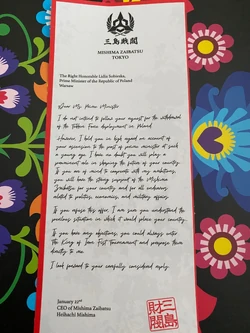 三島財閥
MISHIMA ZAIBATSU
TOKYO
The Right Honorable Lidia Sobieska,
Prime Minister of the Republic of Poland
Warsaw
Dear Ms. Prime Minister
I do not intend to follow your request for the withdrawal
of the Tekken Force deployment in Poland.
However, I hold you in high regard on account of
your ascension to the post of prime minister at such
a young age. I have no doubt you will play a
prominent role in shaping the future of your country.
If you are of mind to cooperate with my ambitions,
you will have the strong support of the Mishima
Zaibatsu for your country and for all endeavors
related to politics, economics, and military affairs.
If you refuse this offer, I am sure you understand the
perilous situation in which it would place your country.
If you have any objections, you could always enter
The King of Iron Fist Tournament and propose them
directly to me.
I look forward to your carefully considered reply.
January 12th
CEO of Mishima Zaibatsu
Heihachi Mishima
三島
財閥